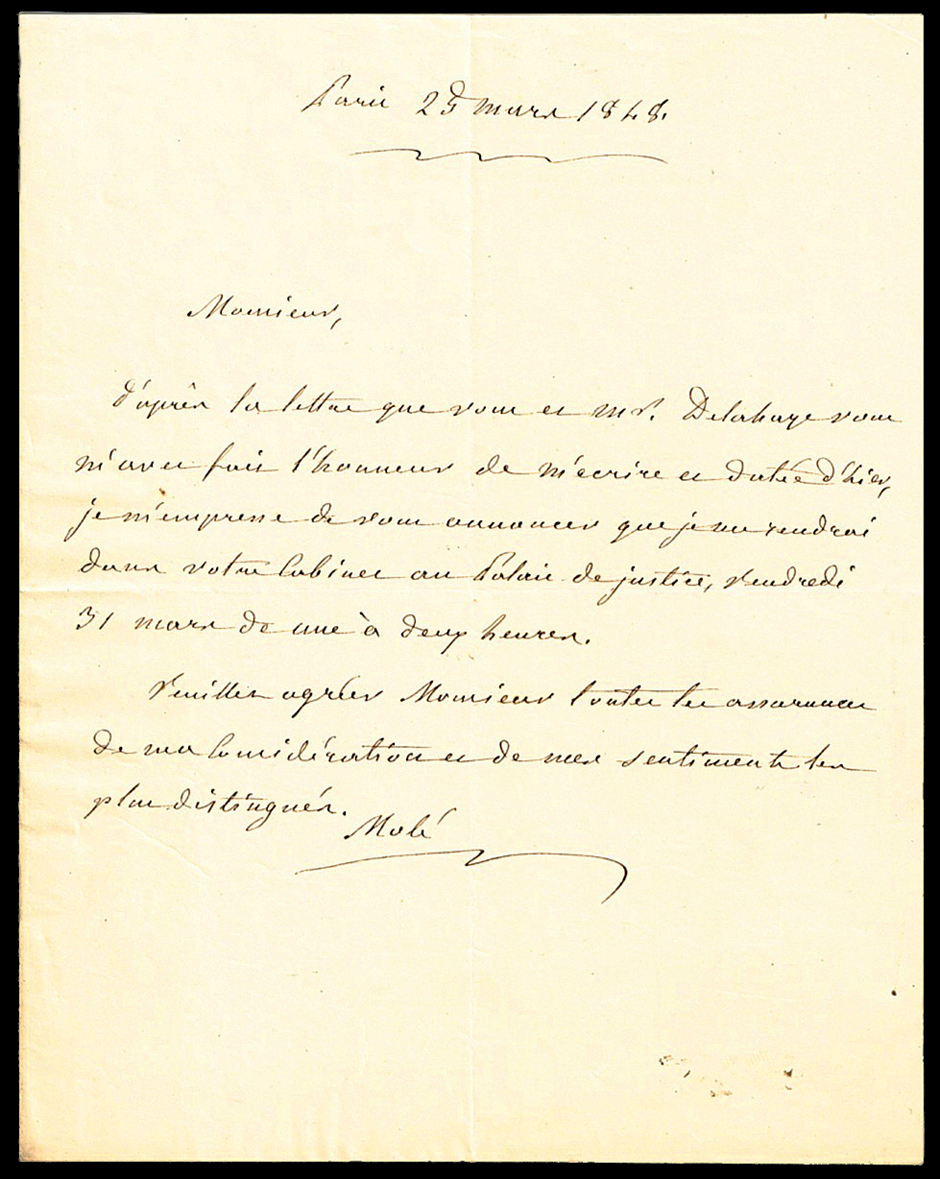 Paris 25 mars 1848.
Monsieur,
d'après la lettre que vous et mr. Delahaye vous
m'avez fait l'honneur de m'écrire et datée d'hier,
je m'empresse de vous annoncer que je me rendrai
dans votre Cabinet au Palais de justice, Vendredi
31 mars de une à deux heures.
Veuillez agréer Monsieur toutes les assurances
de ma Considération et de mes sentiments les
plus distingués.
Molé